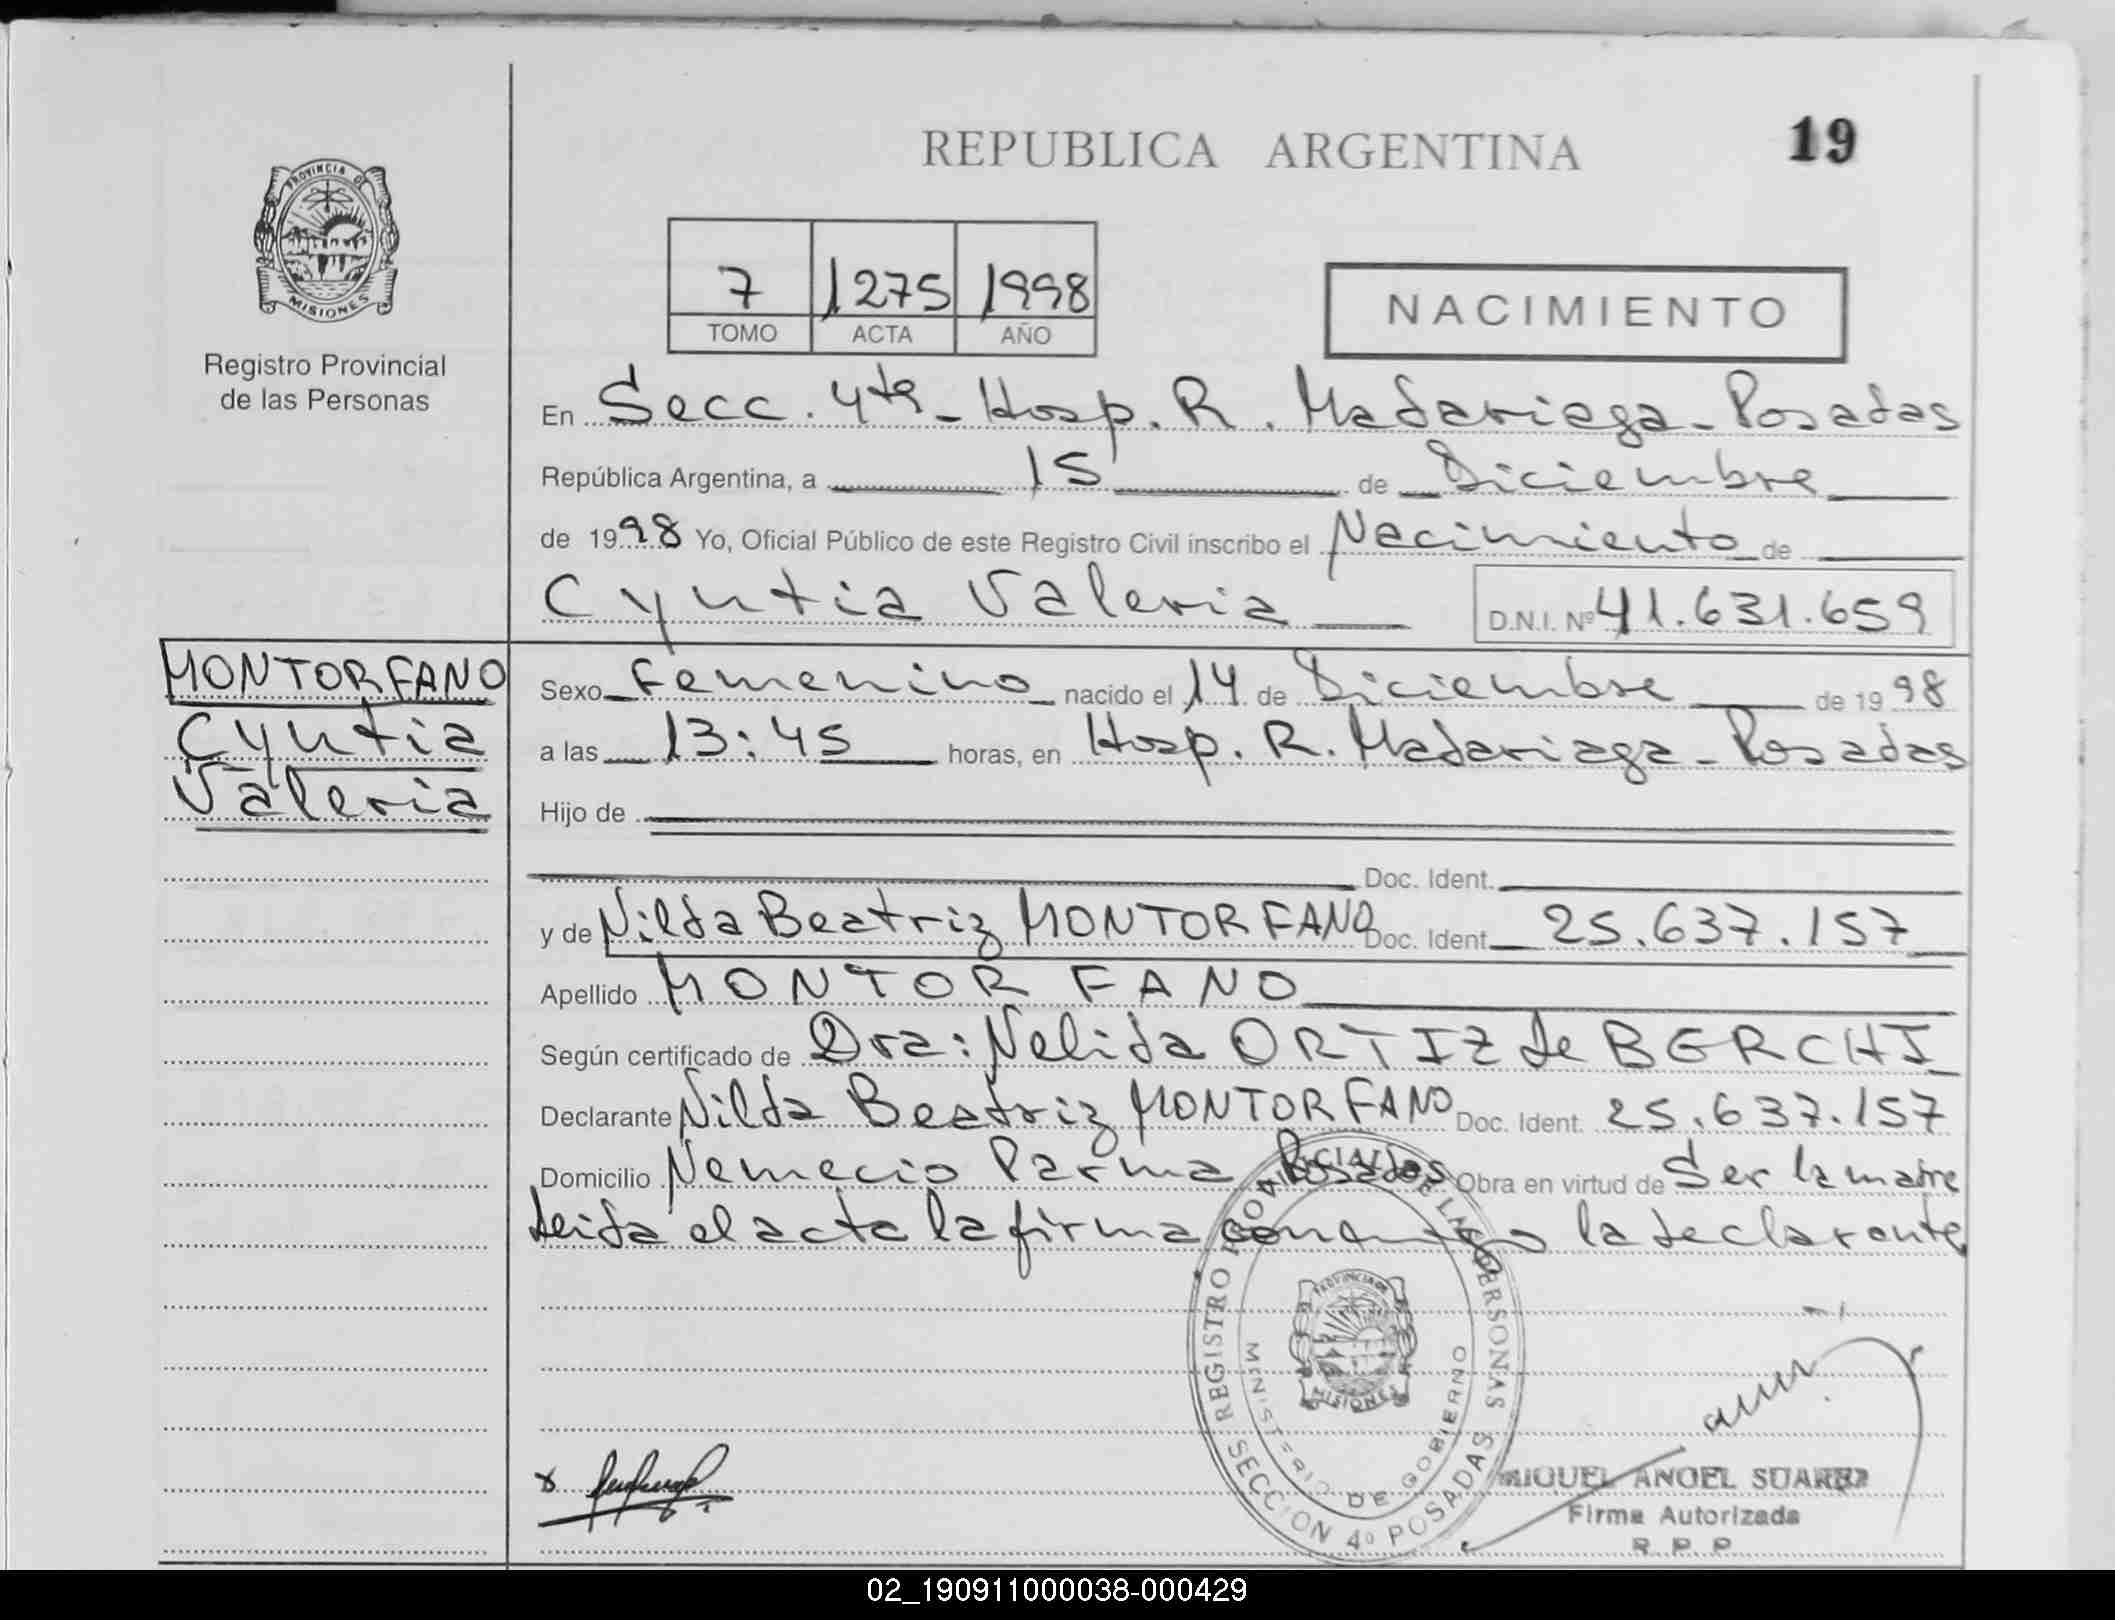 REPUBLICA ARGENTINA
19
PROVINCIA DE
MISIONES
Registro Provincial
de las Personas
7 1275 1998
TOMO ACTA AÑO
NACIMIENTO
En Secc. 4ta - Hosp. R. Madariaga - Posadas
República Argentina, a 15 de Diciembre
de 1998 Yo, Oficial Público de este Registro Civil inscribo el Nacimiento de
Cyntia Valeria D.N.I. Nº 41.631.659
MONTORFANO
Cyntia
Valeria
Sexo Femenino nacido el 14 de Diciembre de 1998
a las 13:45 horas, en Hosp. R. Madariaga - Posadas
Hijo de
Doc. Ident.
y de Nilda Beatriz MONTORFANO Doc. Ident. 25.637.157
Apellido MONTORFANO
Según certificado de Dra: Nelida ORTIZ de BERCHI
Declarante Nilda Beatriz MONTORFANO Doc. Ident. 25.637.157
Domicilio Nemecio Parma Posadas Obra en virtud de Ser la madre
Leida el acta la firma conmigo la declarante
REGISTRO PROVINCIAL DE LAS PERSONAS
SECCION 4º POSADAS
MINISTERIO DE GOBIERNO
PROVINCIA DE
MISIONES
MIGUEL ANGEL SUAREZ
Firma Autorizada
R. P. P.
02_190911000038-000429